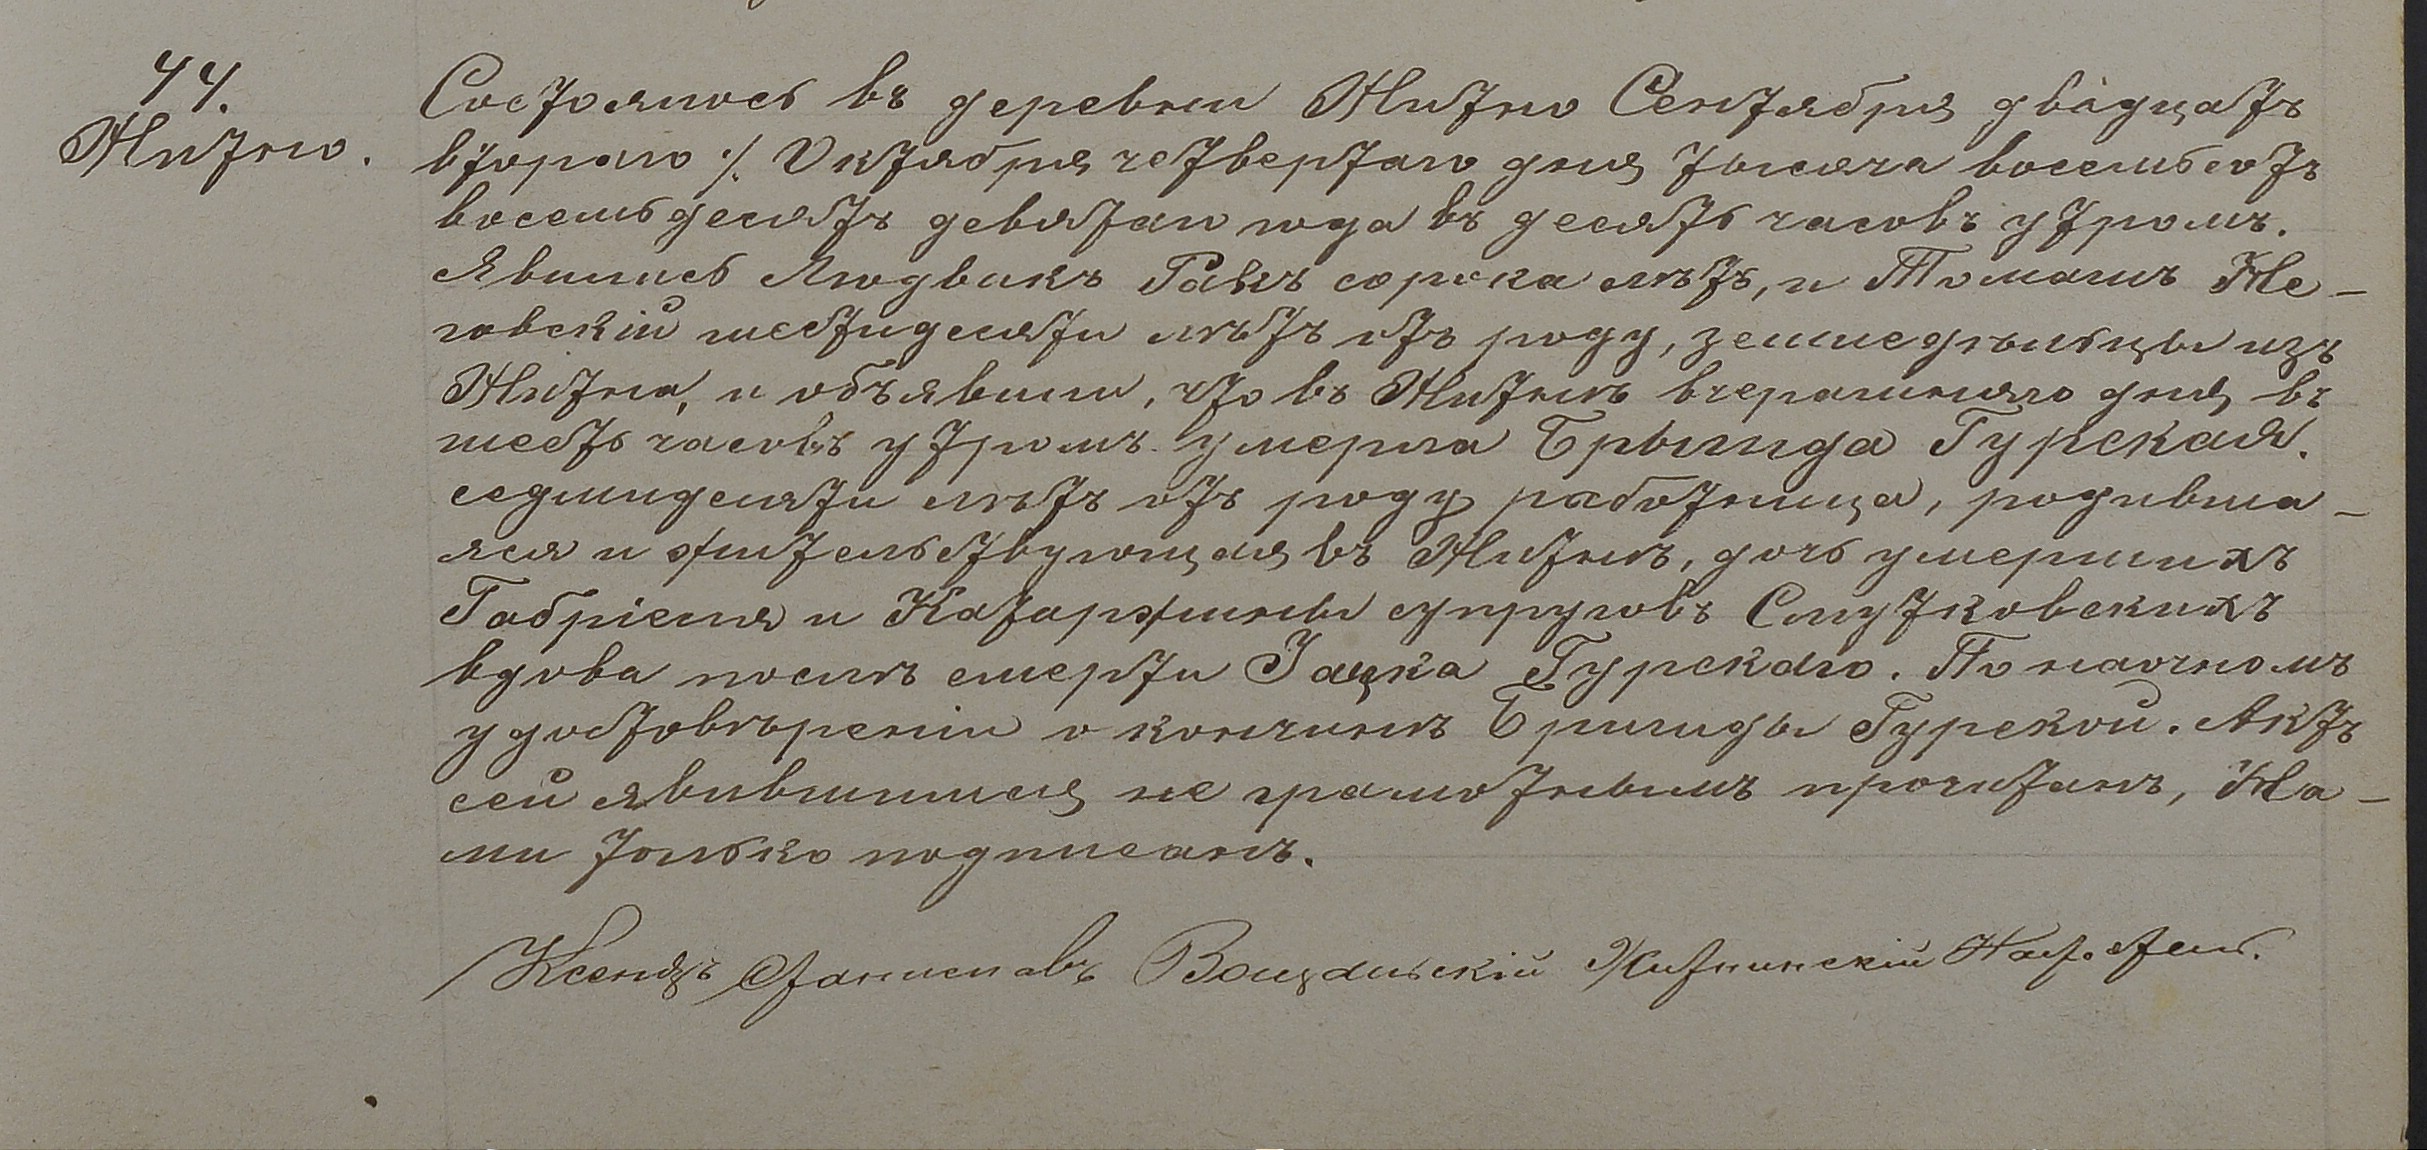 44.
Житно.
Состоялось въ деревни Житно Сентября двадцать
втораго /. Октября четвертаго дня тысяча восемьсотъ
восемьдесятъ девятаго года въ десять часовъ утромъ.
Явились Людвикъ Ракъ сорока лѣтъ, и Томашъ Же-
говскій шестидесяти лѣтъ отъ роду, земледѣльцы изъ
Житна, и объявили, что въ Житнѣ вчерашняго дня въ
шесть часовъ утромъ умерла Брыгида Гурская.
седмидесяти лѣтъ отъ роду работница, родивша-
яся и жительствующая въ Житнѣ, дочь умершихъ
Габріеля и Катаржины супруговъ Смутковскихъ
вдова послѣ смерти Яцка Гурскаго. По наочномъ
удостовѣреніи о кончинѣ Бригиды Гурской. Актъ
сей явившимся не грамотнымъ прочитанъ, На-
ми только подписанъ.
Ксендзъ Станиславъ Житнинскій Наст.